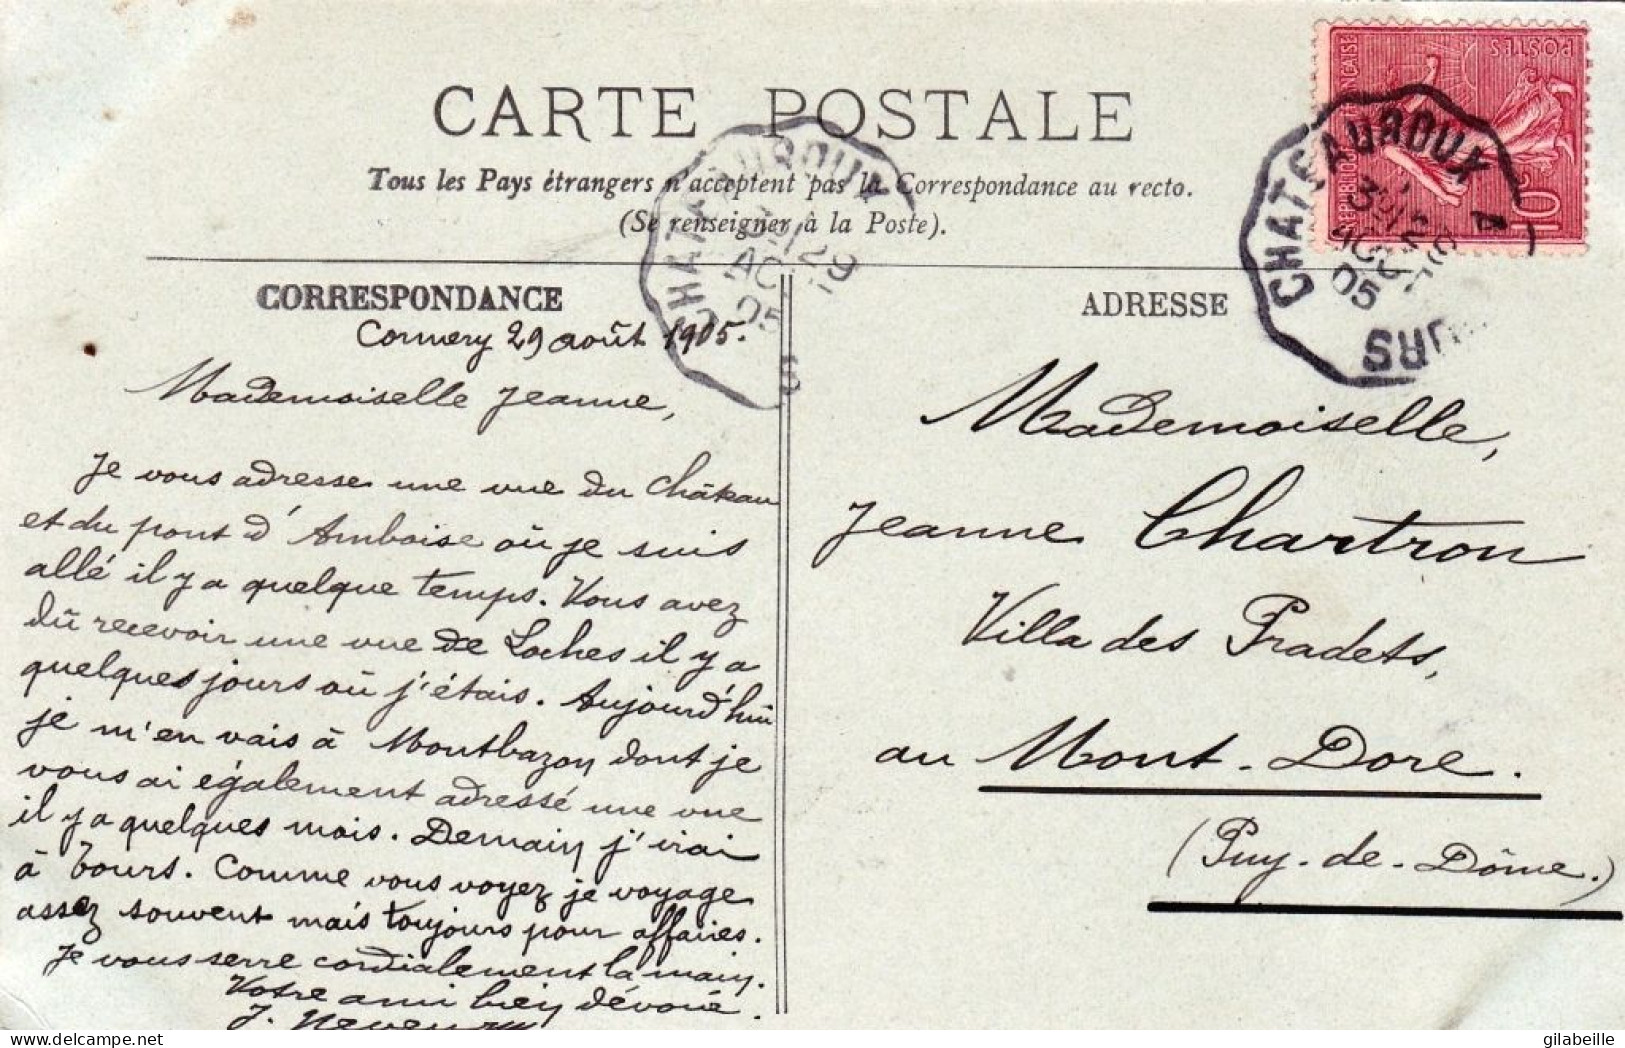 CARTE POSTALE
Tous les Pays étrangers n'acceptent pas la Correspondance au recto.
(Se renseigner à la Poste).
CORRESPONDANCE
Cormery 29 août 1905.
Mademoiselle Jeanne,
Je vous adresse une vue du Château
et du pont d'Amboise où je suis
allé il y a quelque temps. Vous avez
dû recevoir une vue de Loches il y a
quelques jours où j'étais. Aujourd'hui
je m'en vais à Montbazon dont je
vous ai également adressé une vue
il y a quelques mois. Demain j'irai
à Tours. Comme vous voyez je voyage
assez souvent mais toujours pour affaires.
Je vous serre cordialement la main.
Votre ami bien dévoué.
J.
ADRESSE
Mademoiselle,
Jeanne Chartron
Villa des Pradets,
au Mont-Dore.
(Puy-de-Dôme.)
REPUBLIQUE FRANÇAISE
POSTES
10c
CHATEAUROUX A
29
AOUT
05
CHATEAUROUX
29
05
gilabeille